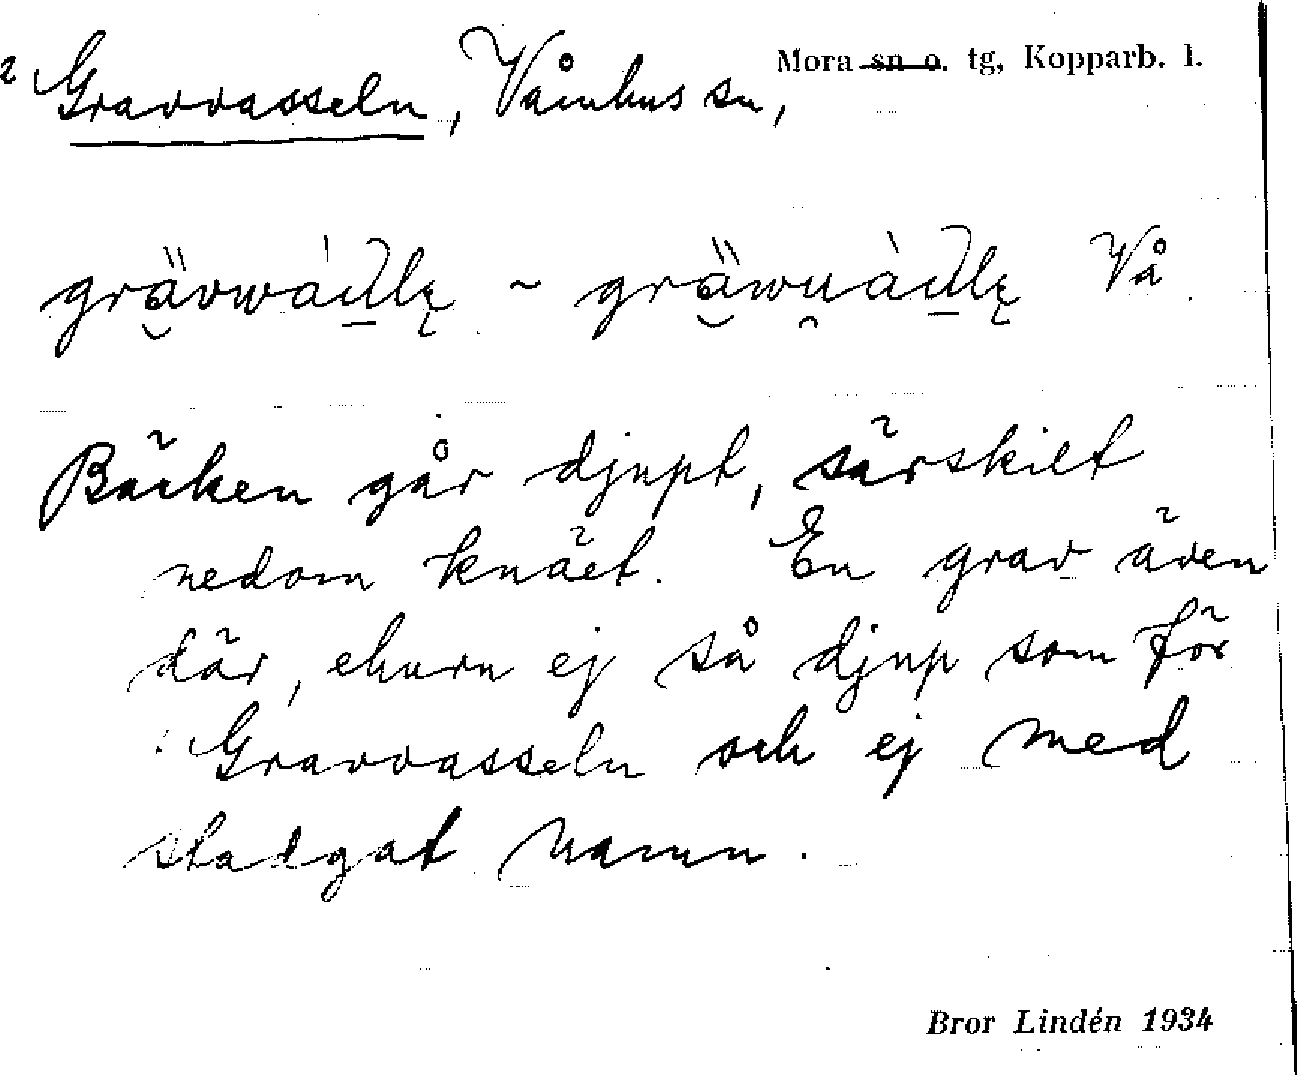 2 Gravvasseln, Våmhus sn, Mora sn o. tg, Kopparb. l.
Vå
Bäcken går djupt, särskilt
nedom knäet. En grav även
där, ehuru ej så djup som för
Gravvasseln och ej med
stadgat namn.
Bror Lindén 1934